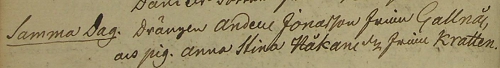 Samma Dag. Drängen Andere Jonasson frånn Gallnäs
ock pig. Anna Stina Håkansdr frånn Kratten.